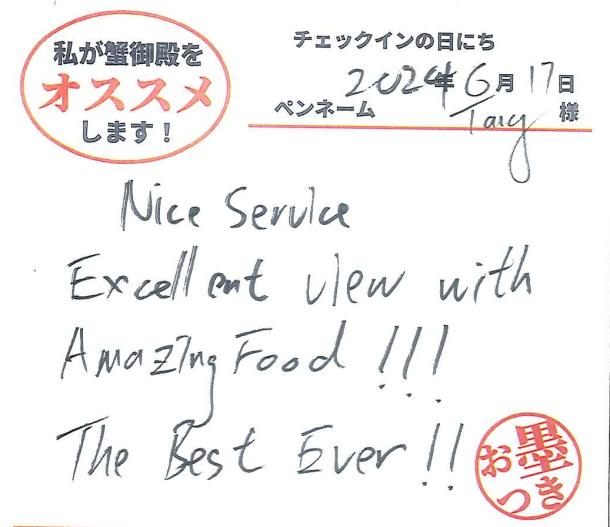 私が蟹御殿を
オススメ
します！
チェックインの日にち
2024年6月17日
ペンネーム 様
Nice Service
Excellent view with
Amazing Food !!!
The Best Ever !!
お墨つき